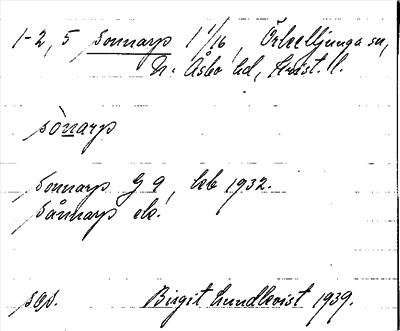 1-2, 5 Sonnarp 1 1/16, Örkelljunga sn,
N. Åsbo hd, Krist. l.
sònarp
Sonnarp G 9, leb 1932.
Sånnarp ek.
sgs. Birgit Lundkvist 1939.